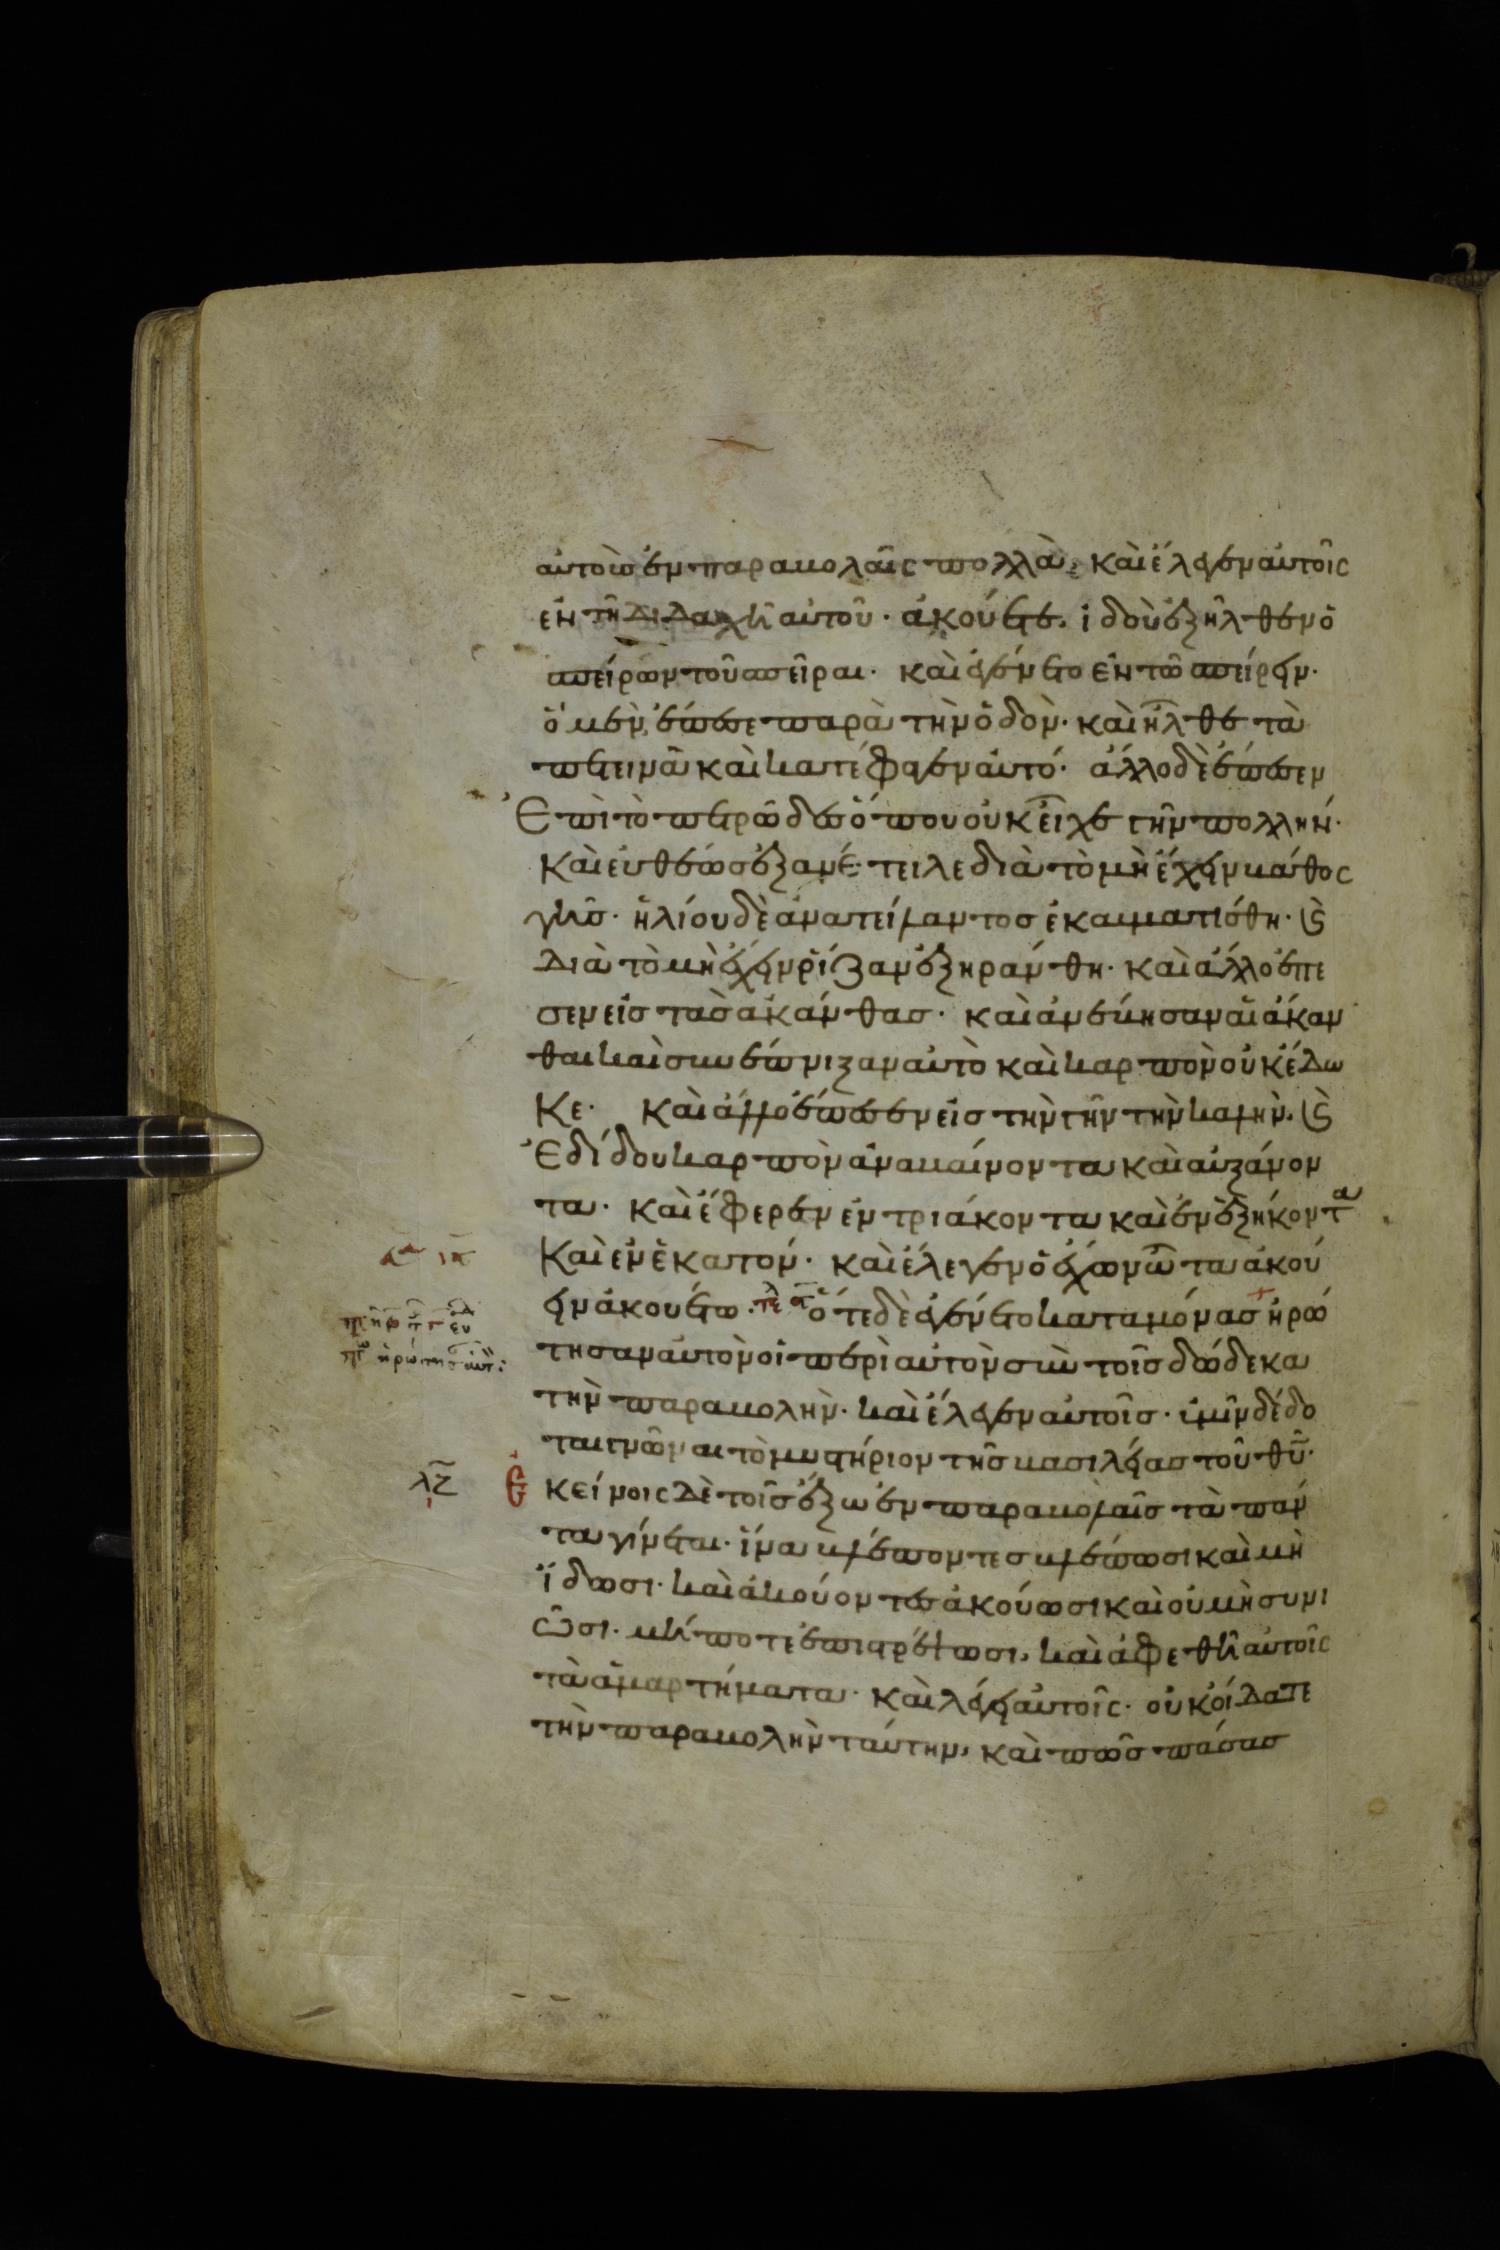 αὐτοὺσ ἐν παραβολαῖς πολλὰ, καὶ ἔλεγεν αὐτοῖς
ἐν τῆ διδαχῆ αὐτοῦ· ἀκούετε. ἰδοὺ ἐξῆλθεν ὁ
σπείρων τοῦ σπεῖραι· καὶ ἐγένετο ἐν τῶ σπείρειν·
ὃ μὲν, ἔπεσε παρὰ τὴν ὁδὸν· καὶ ἦλθε τὰ
πετεινὰ καὶ κατέφαγεν αὐτό· ἄλλο δὲ ἔπεσεν
Ἐπὶ τὸ πετρῶδεσ ὅπου οὐκ εἶχε γῆν πολλήν·
Καὶ εὐθέωσ ἐξανέτειλε διὰ τὸ μὴ ἔχειν βάθος
γῆσ· ἡλίου δὲ ἀνατείλαντοσ ἐκαυματίσθη· κς̀
Διὰ τὸ μὴ ἔχειν ρίζαν ἐξηράνθη· καὶ ἄλλο ἔπε
σεν εἰσ τὰσ ἀκάνθασ· καὶ ἀνέβησαν αἱ ἄκαν
θαι καὶ συνέπνιξαν αὐτὸ καὶ καρπὸν οὐκ ἔδω
Κε· καὶ ἄλλο ἔπεσεν εἰσ τὴν γῆν τὴν καλὴν. κς̀
Ἐδίδου καρπὸν ἀναβαίνοντα καὶ αὐξάνον
τα· καὶ ἔφερεν ἐν τριάκοντα καὶ ἐν ἐξήκοντα
Καὶ ἐν ἑκατόν· καὶ ἔλεγεν ὁ ἔχων ὦτα ἀκού
ειν ἀκουέτω· ὅτε δὲ ἐγένετο καταμόνασ ἠρώ
τησαν αὐτὸν οἱ περὶ αὐτὸν σὺν τοῖσ δώδεκα
τὴν παραβολὴν· καὶ ἔλεγεν αὐτοῖσ· ὑμῖν δέδο
ται γνῶναι τὸ μυστήριον τῆσ βασιλείασ τοῦ θῦ·
λζ Ἐκείνοις δὲ τοῖσ ἔξω ἐν παραβολαῖσ τὰ πάν
τα γίνεται· ἵνα βλέποντεσ βλέπωσι καὶ μὴ
ἴδωσι· καὶ ἀκούοντεσ ἀκούωσι καὶ οὐ μὴ συνι
ῶσι· μήποτε ἐπιστρέψωσι, καὶ ἀφεθῆ αὐτοῖς
τὰ ἁμαρτήματα· καὶ λέγει αὐτοῖς· οὐκ οἴδατε
τὴν παραβολὴν ταύτην, καὶ πῶσ πάσασ